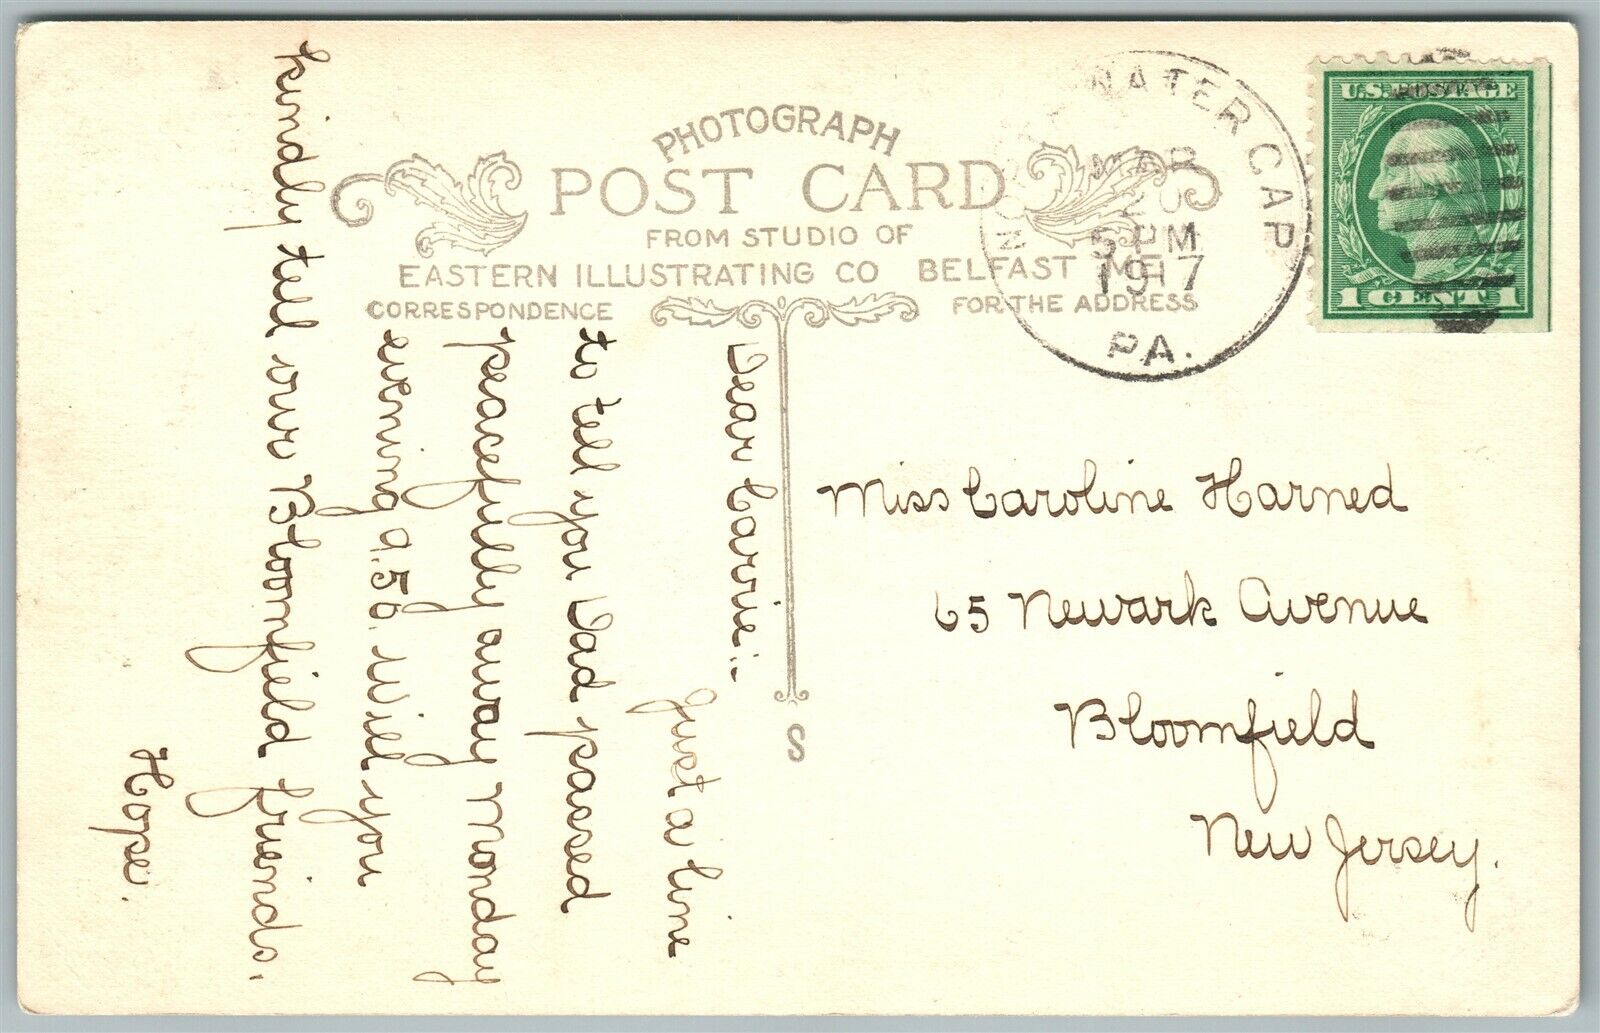 PHOTOGRAPH
POST CARD
FROM STUDIO OF
EASTERN ILLUSTRATING CO BELFAST ME.
CORRESPONDENCE
FOR THE ADDRESS
WATER GAP
MAR
5 PM
1917
PA.
U.S. POSTAGE
1 CENT 1
Dear Carrie:-
Just a line
to tell you Dad passed
peacefully away Monday
evening 9.50. Will you
kindly tell our Bloomfield friends.
Hope.
S
Miss Caroline Harned
65 Newark Avenue
Bloomfield
New Jersey.